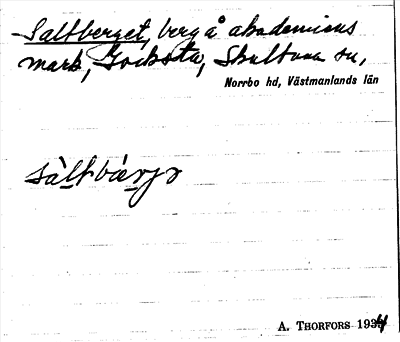 Saltberget, berg å akademiens
mark, Gocksta, Skultuna sn,
Norrbo hd, Västmanlands län
sàltbærjə
A. THORFORS 1934